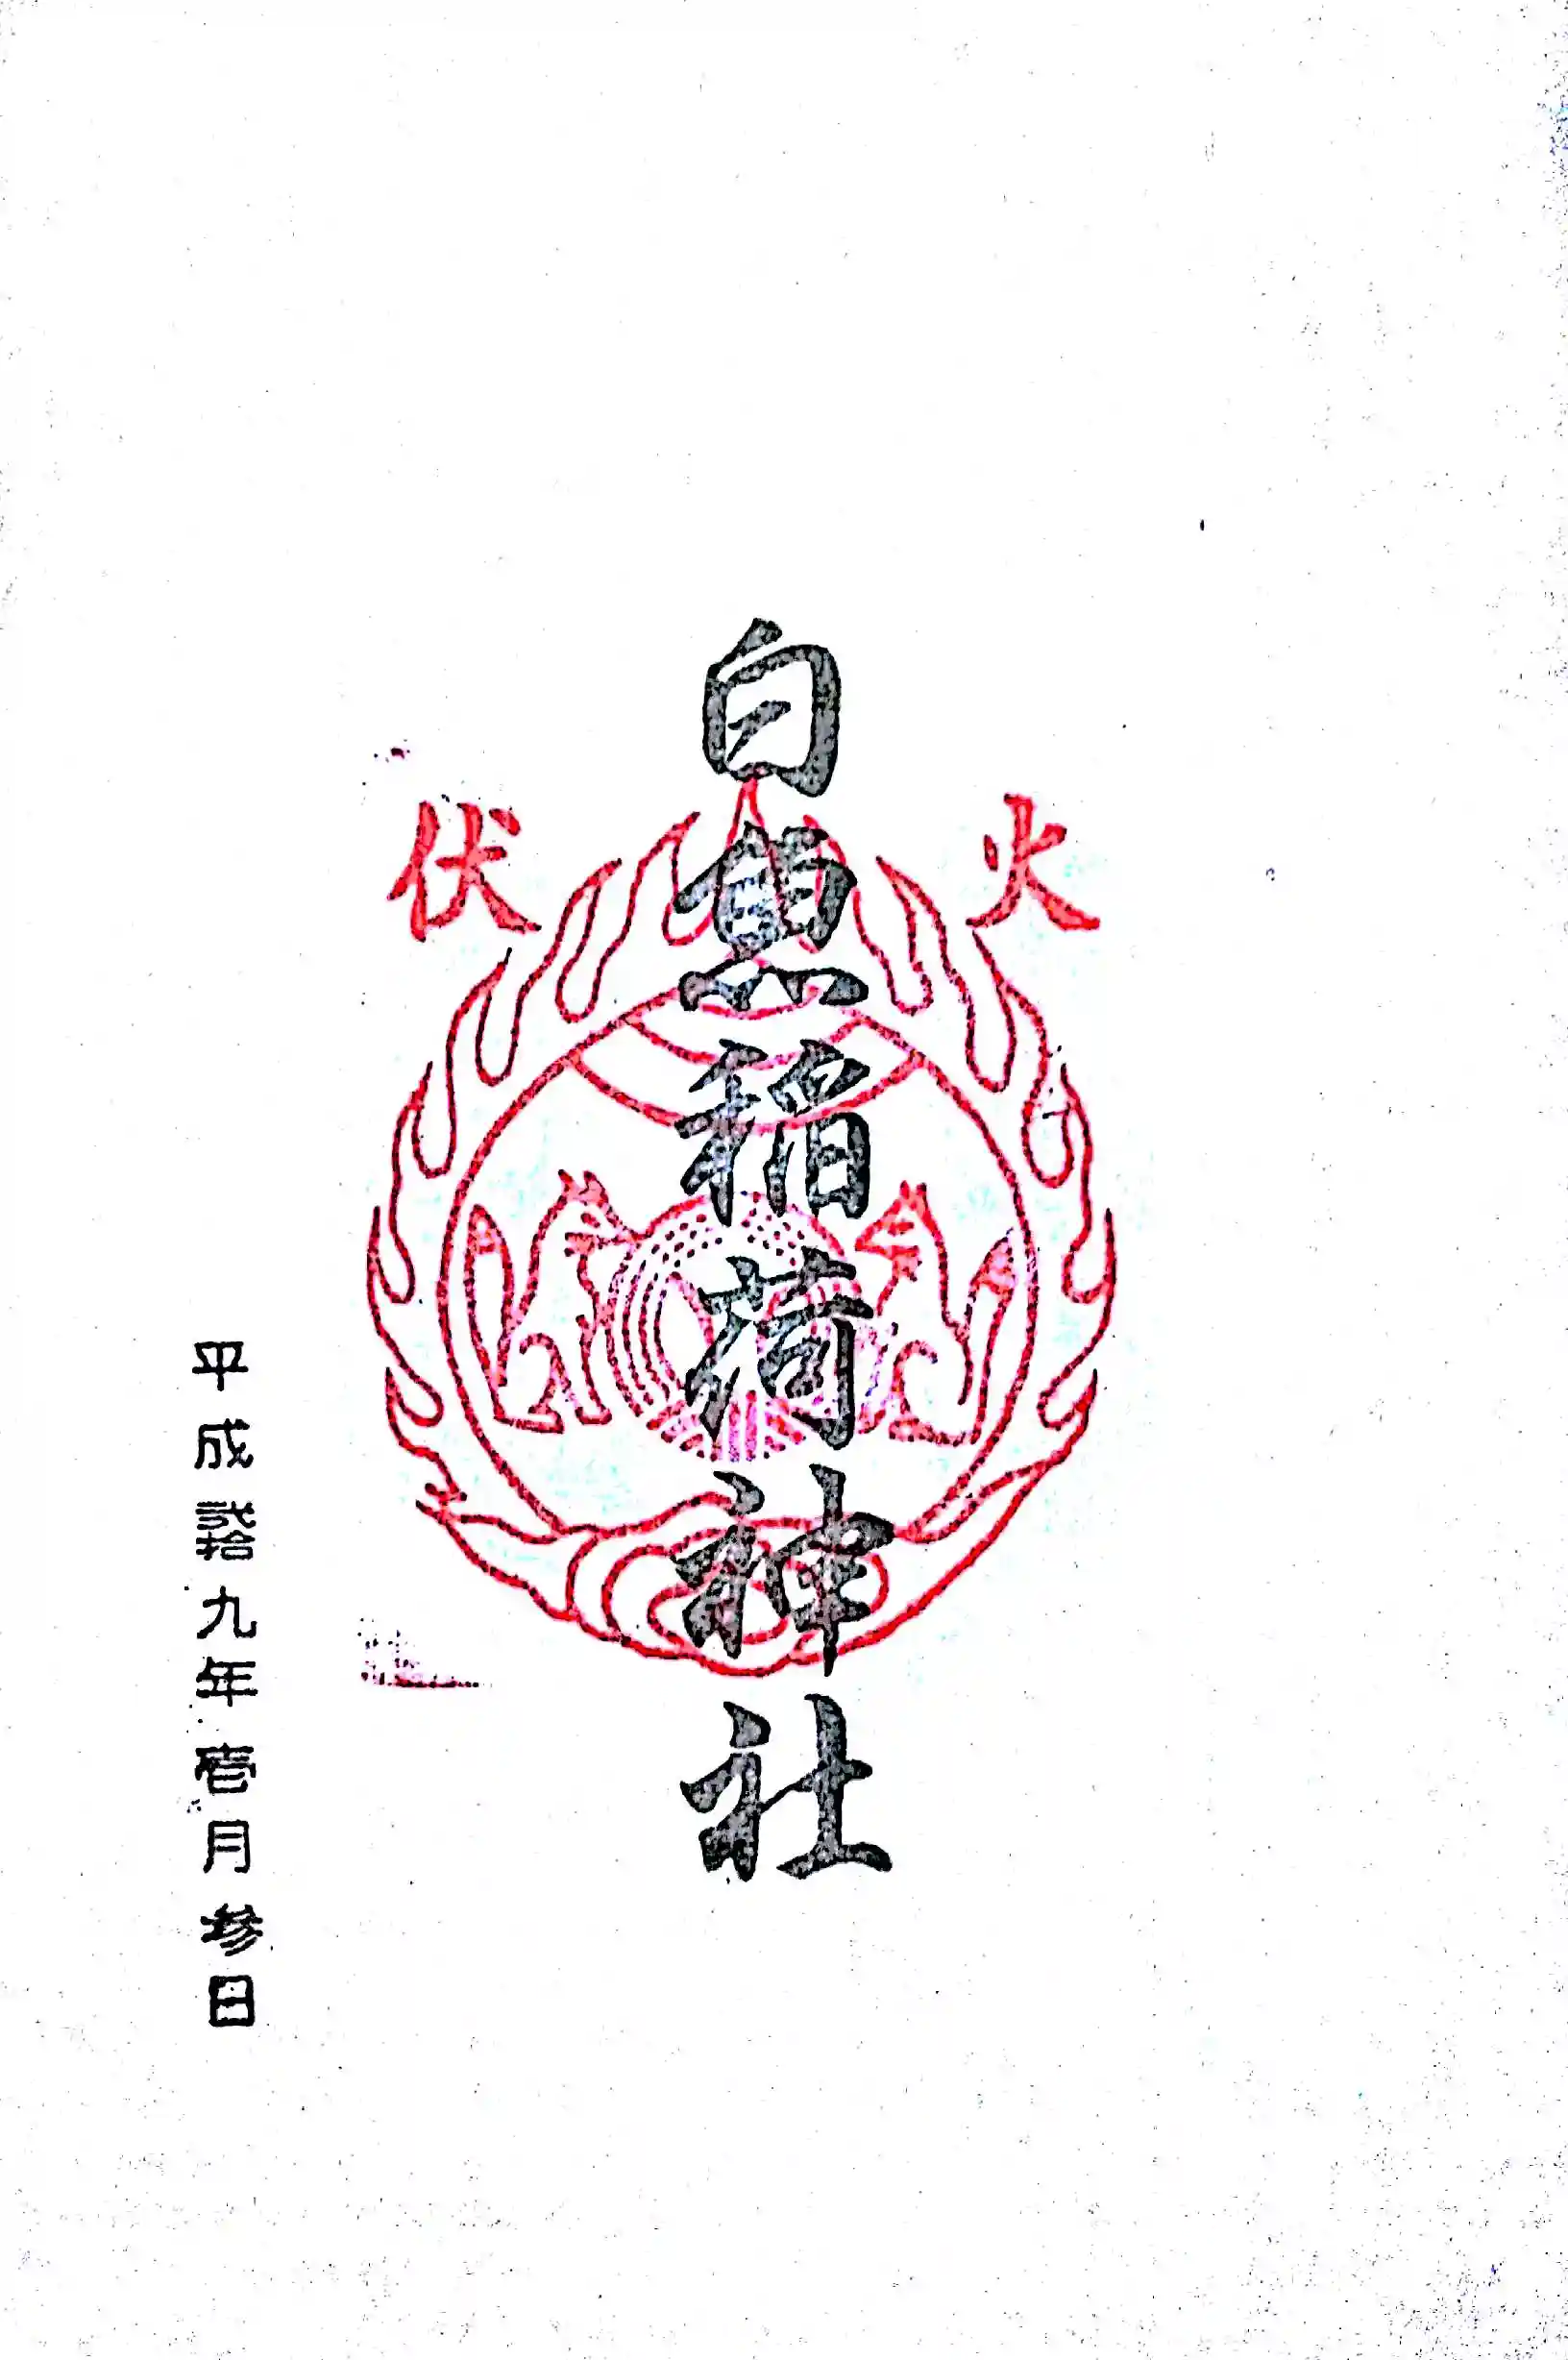 火伏
白魚稲荷神社
平成弐拾九年壱月参日